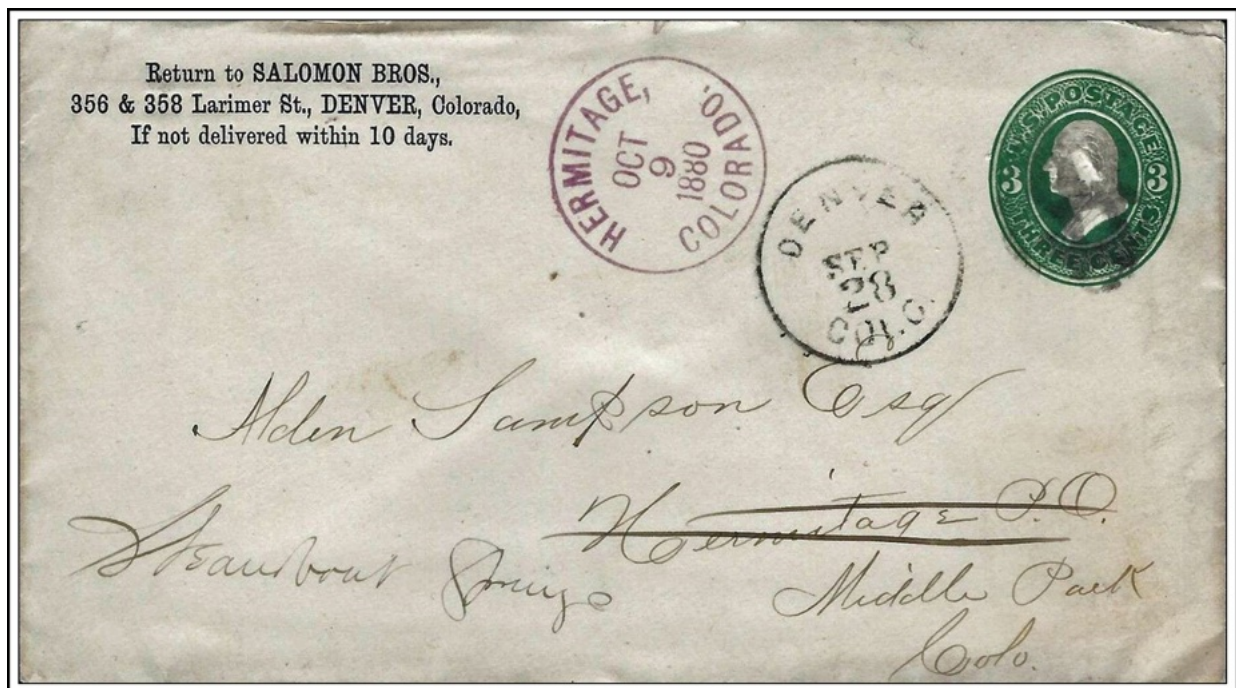 Return to SALOMON BROS.,
356 & 358 Larimer St., DENVER, Colorado,
If not delivered within 10 days.
HERMITAGE, COLORADO.
OCT
9
1880
DENVER
SEP
28
COLO.
U.S. POSTAGE
3 3
THREE CENTS
Alden Sampson Esq
Hermitage P.O.
Steamboat Springs
Middle Park
Colo.